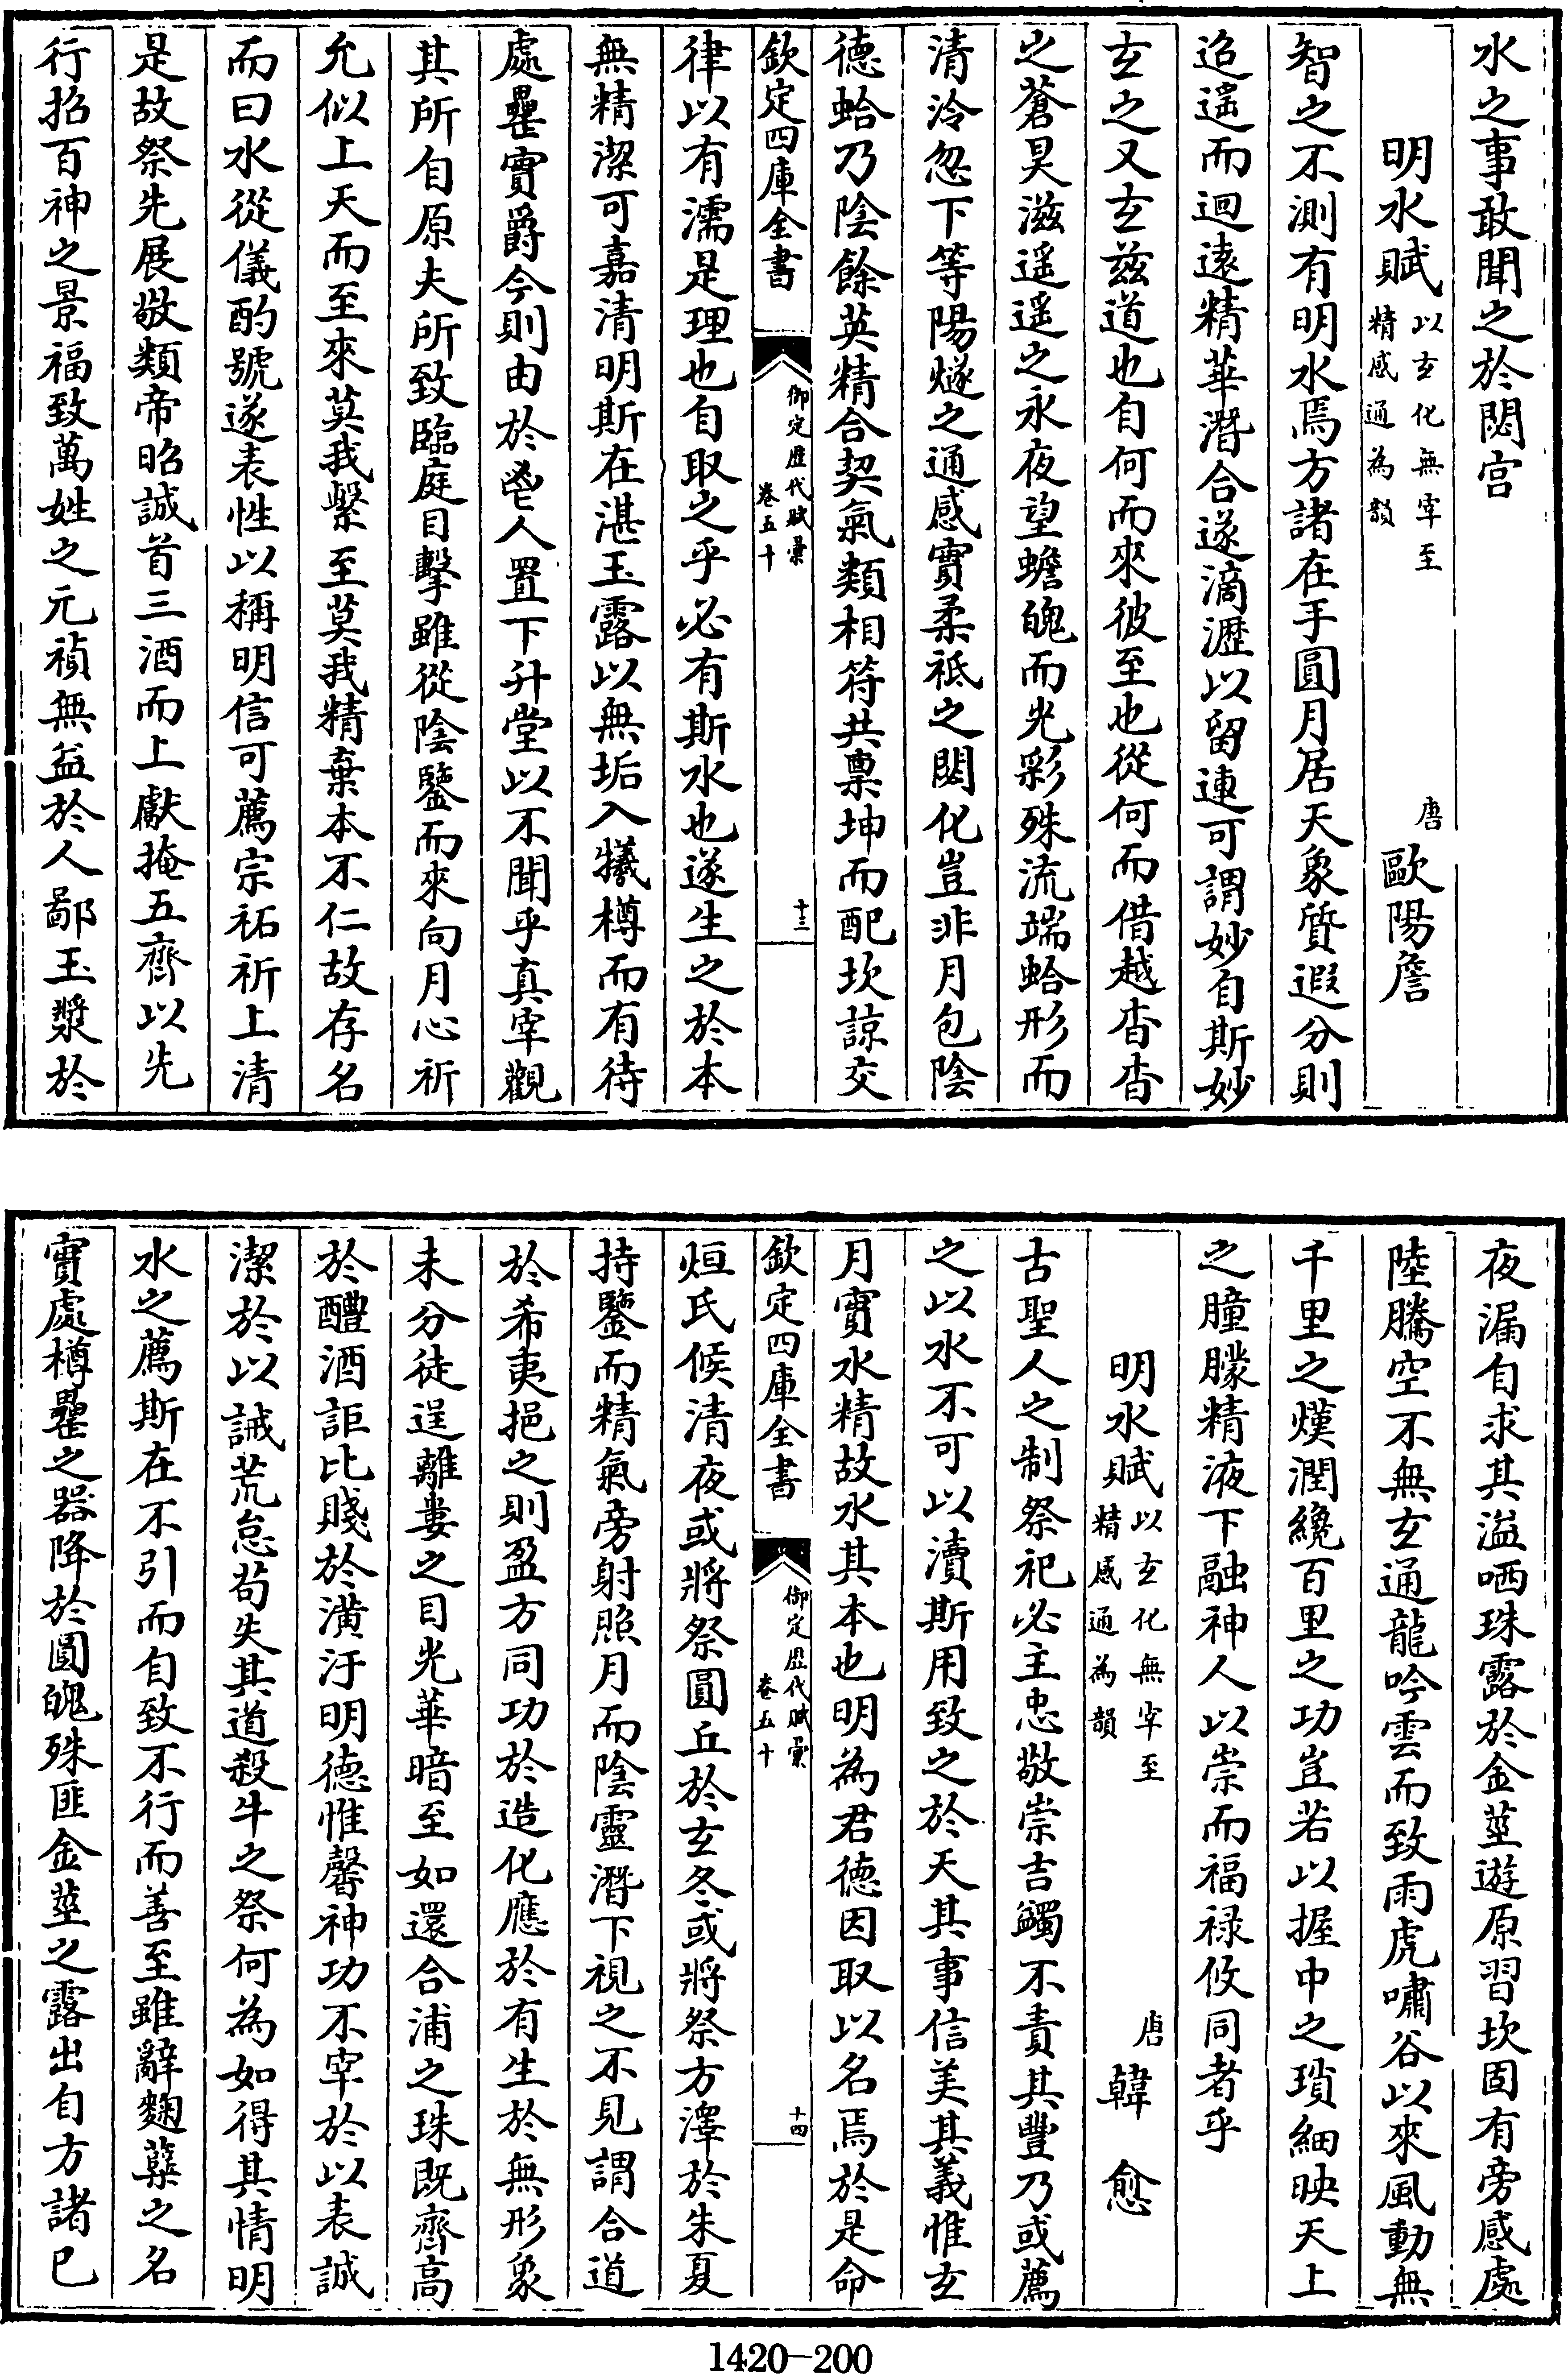 水之事敢聞之於閟宫
明水賦以𤣥化無宰至精感通為韻 唐歐陽詹
智之不測有明水焉方諸在手圓月居天象質遐分則
迢遥而迴遠精華潛合遂滴瀝以留連可謂妙自斯妙
𤣥之又𤣥兹道也自何而來彼至也從何而借越杳杳
之蒼昊滋遥遥之永夜望蟾魄而光彩殊流端蛤形而
清泠忽下等陽燧之通感實柔祗之閟化豈非月包陰
德蛤乃陰餘英精合契氣類相符共禀坤而配坎諒交
欽定四庫全書 御定歴代賦彙 卷五十 十三
律以有濡是理也自取之乎必有斯水也遂生之於本
無精潔可嘉清明斯在湛玉露以無垢入犧樽而有待
處罍實爵今則由於鬯人置下升堂以不聞乎真宰觀
其所自原夫所致臨庭目擊雖從陰鑒而來向月心祈
允似上天而至來莫我繫至莫我精棄本不仁故存名
而曰水從儀酌號遂表性以稱明信可薦宗祏祈上清
是故祭先展敬類帝昭誠首三酒而上獻掩五齊以先
行招百神之景福致萬姓之元禎無益於人鄙玉漿於
夜漏自求其溢哂珠露於金莖遊原習坎固有旁感處
陸騰空不無𤣥通龍吟雲而致雨虎嘯谷以來風動無
千里之熯潤纔百里之功豈若以握中之瑣細映天上
之朣朦精液下融神人以崇而福禄攸同者乎
明水賦以𤣥化無宰至精感通為韻 唐韓愈
古聖人之制祭祀必主忠敬崇吉蠲不責其豐乃或薦
之以水不可以瀆斯用致之於天其事信美其義惟𤣥
月實水精故水其本也明為君德因取以名焉於是命
欽定四庫全書 御定歴代賦彙 卷五十 十四
烜氏候清夜或將祭圓丘於𤣥冬或將祭方澤於朱夏
持鑒而精氣旁射照月而陰靈潛下視之不見謂合道
於希夷挹之則盈方同功於造化應於有生於無形象
未分徒逞離婁之目光華暗至如還合浦之珠既齊高
於醴酒詎比賤於潢汙明德惟馨神功不宰於以表誠
潔於以誡荒怠苟失其道殺牛之祭何為如得其情明
水之薦斯在不引而自致不行而善至雖辭麴糵之名
實處樽罍之器降於圓魄殊匪金莖之露出自方諸已
1420—200